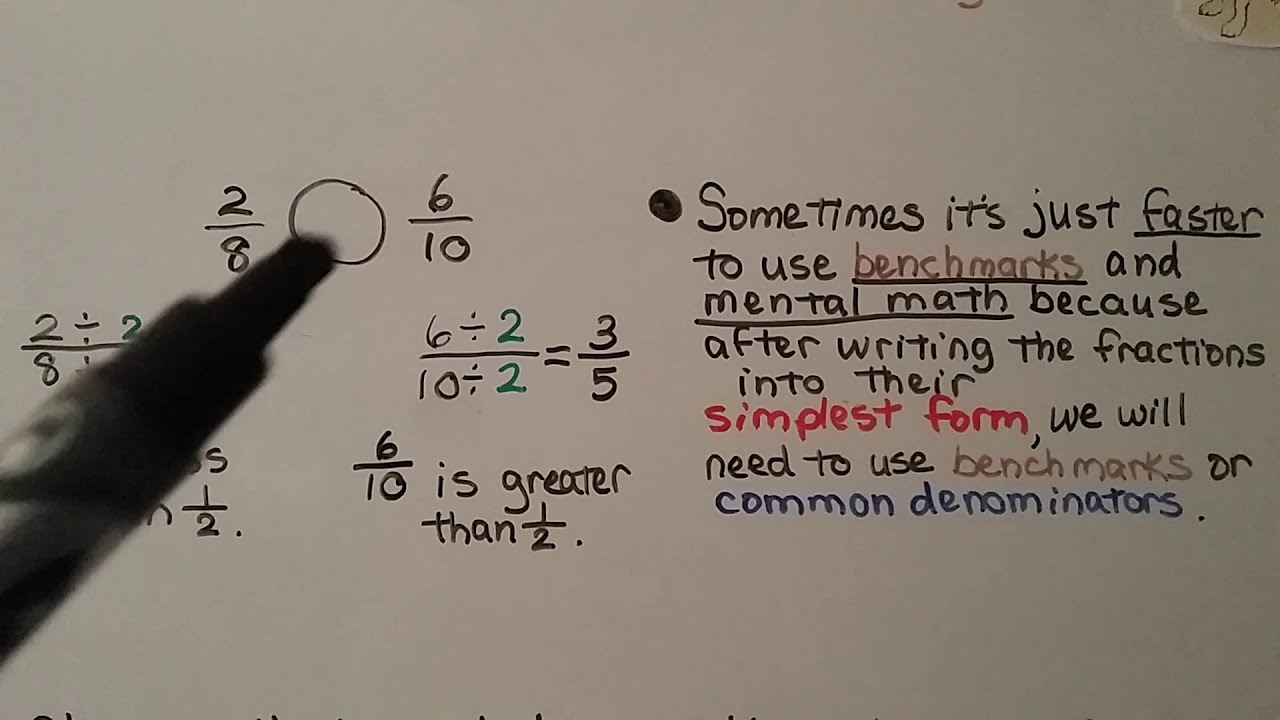 2/8 ◯ 6/10
2 ÷ 2
8 ÷
6 ÷ 2 / 10 ÷ 2 = 3/5
1/2.
6/10 is greater
than 1/2.
● Sometimes it's just faster
to use benchmarks and
mental math because
after writing the fractions
into their
simplest form, we will
need to use benchmarks or
common denominators.